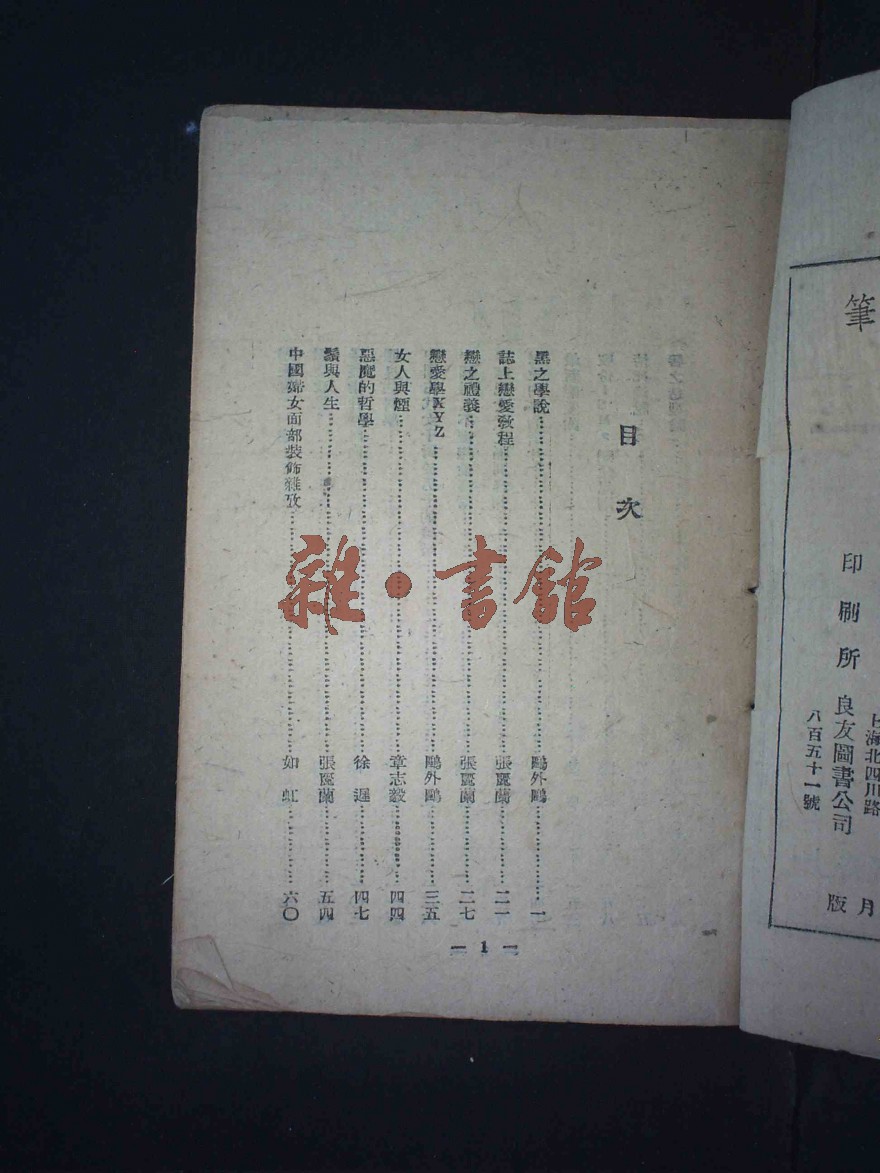 筆
印刷所
良友圖書公司
上海北四川路
八百五十一號
月
版
目次
黑之學說 鷗外鷗 一
誌上戀愛教程 張麗蘭 二一
戀之禮義 張麗蘭 二七
戀愛學XYZ 鷗外鷗 三五
女人與煙 章志毅 四四
惡魔的哲學 徐遲 四七
鬚與人生 張麗蘭 五四
中國婦女面部裝飾雜攷 如虹 六〇
— 1 —
雜·書館